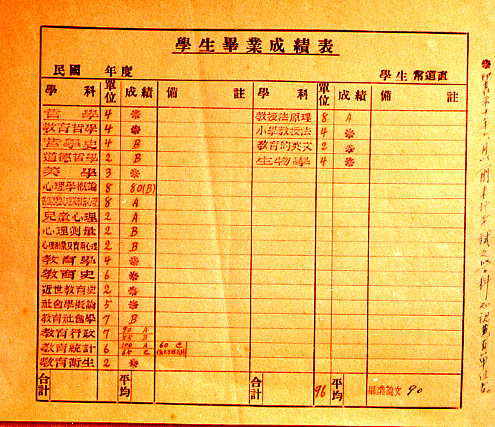 學生畢業成績表
民國 年度 學生 常道直
學科 單位 成績 備註 學科 單位 成績 備註
哲學 4 ※ 教授法原理 8 A
教育哲學 4 ※ 小學教授法 4 ※
哲學史 4 B 教育的英文 2 ※
道德哲學 2 B 生物學 4 ※
美學 3 ※
心理學概論 8 80(B)
8 A
兒童心理 2 A
心理測量 2 B
2 B
教育學 4 ※
教育史 6 ※
近世教育史 2 ※
社會學概論 5 ※
教育社會學 7 B
教育行政 7 90 A 85 B
教育統計 6 100 A 65 C 60 C
教育衛生 2 ※
合計 平均 合計 96 平均 畢業論文 90